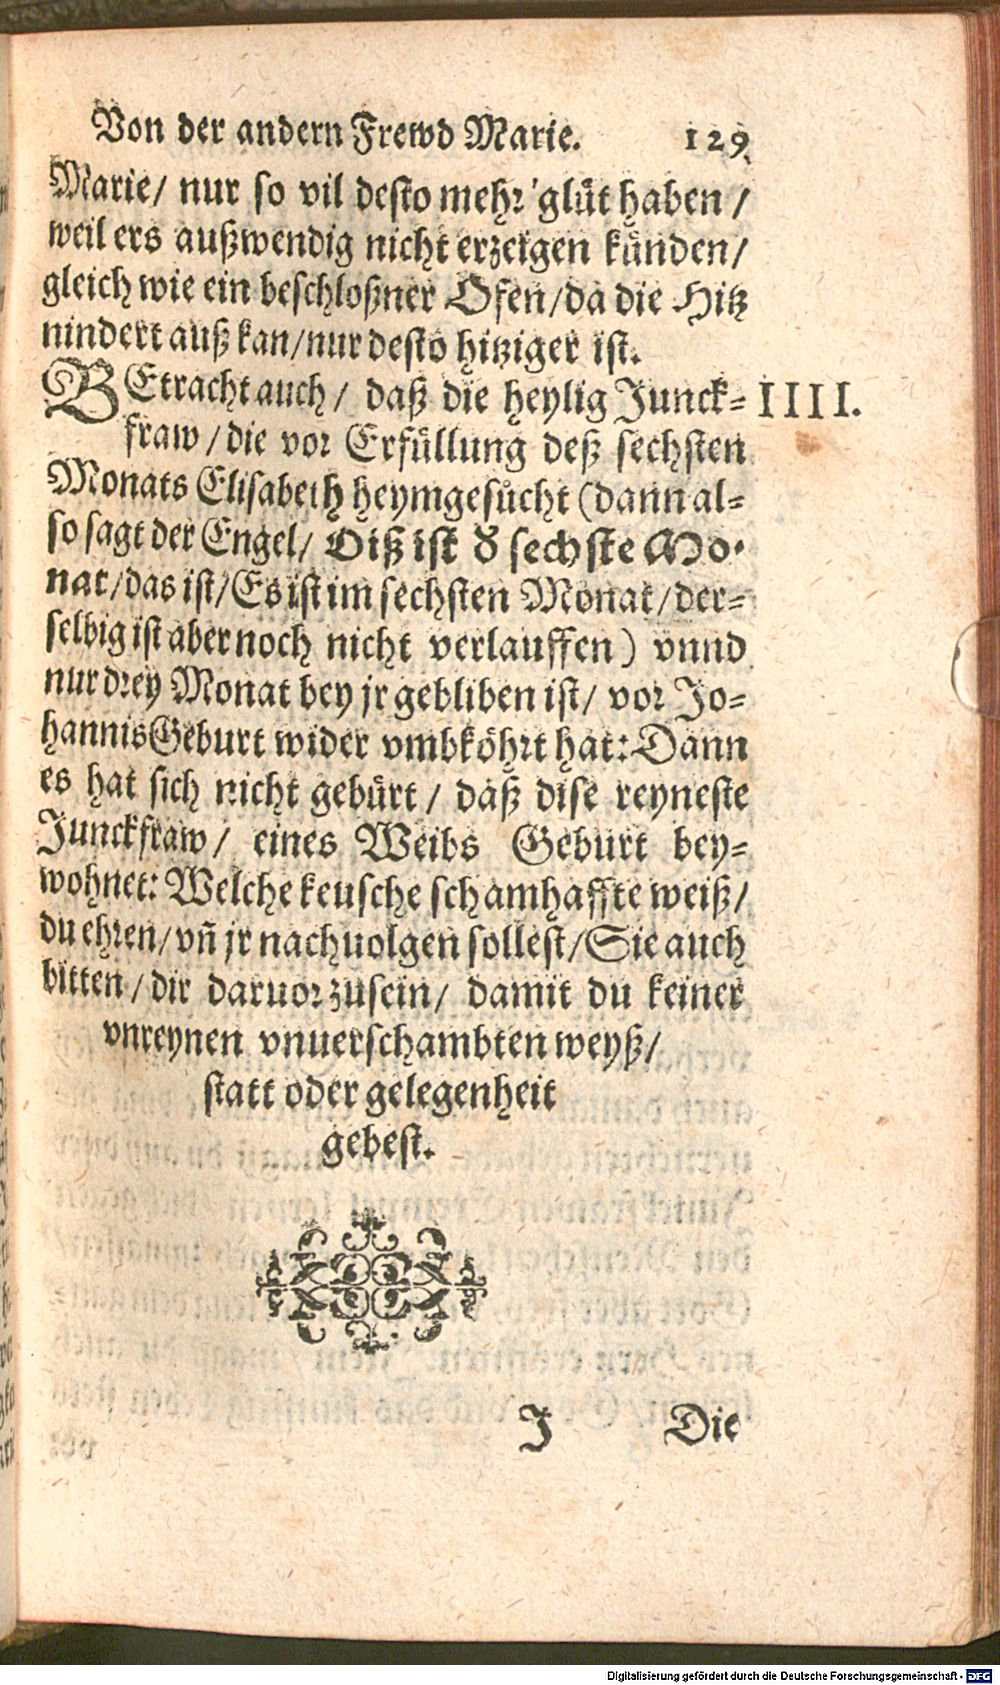 Von der andern Frewd Marie. 129
Marie/ nur so vil desto mehr glüt haben/
weil ers außwendig nicht erzeigen künden/
gleich wie ein beschloßner Ofen/da die Hitz
nindert auß kan/nur desto hitziger ist.
BEtracht auch/ daß die heylig Junck= IIII.
fraw/die vor Erfüllung deß sechsten
Monats Elisabeth heymgesůcht (dann al=
so sagt der Engel/ Diß ist d sechste Mo=
nat/das ist/Es ist im sechsten Monat/der=
selbig ist aber noch nicht verlauffen) vnnd
nur drey Monat bey jr gebliben ist/ vor Jo=
hannis Geburt wider vmbköhrt hat: Dann
es hat sich nicht gebürt/ daß dise reyneste
Junckfraw/ eines Weibs Geburt bey=
wohnet: Welche keusche schamhaffte weiß/
du ehren/vñ jr nachuolgen sollest/Sie auch
bitten/dir daruor zusein/ damit du keiner
vnreynen vnuerschambten weyß/
statt oder gelegenheit
gebest.
J Die
Digitalisierung gefördert durch die Deutsche Forschungsgemeinschaft - DFG